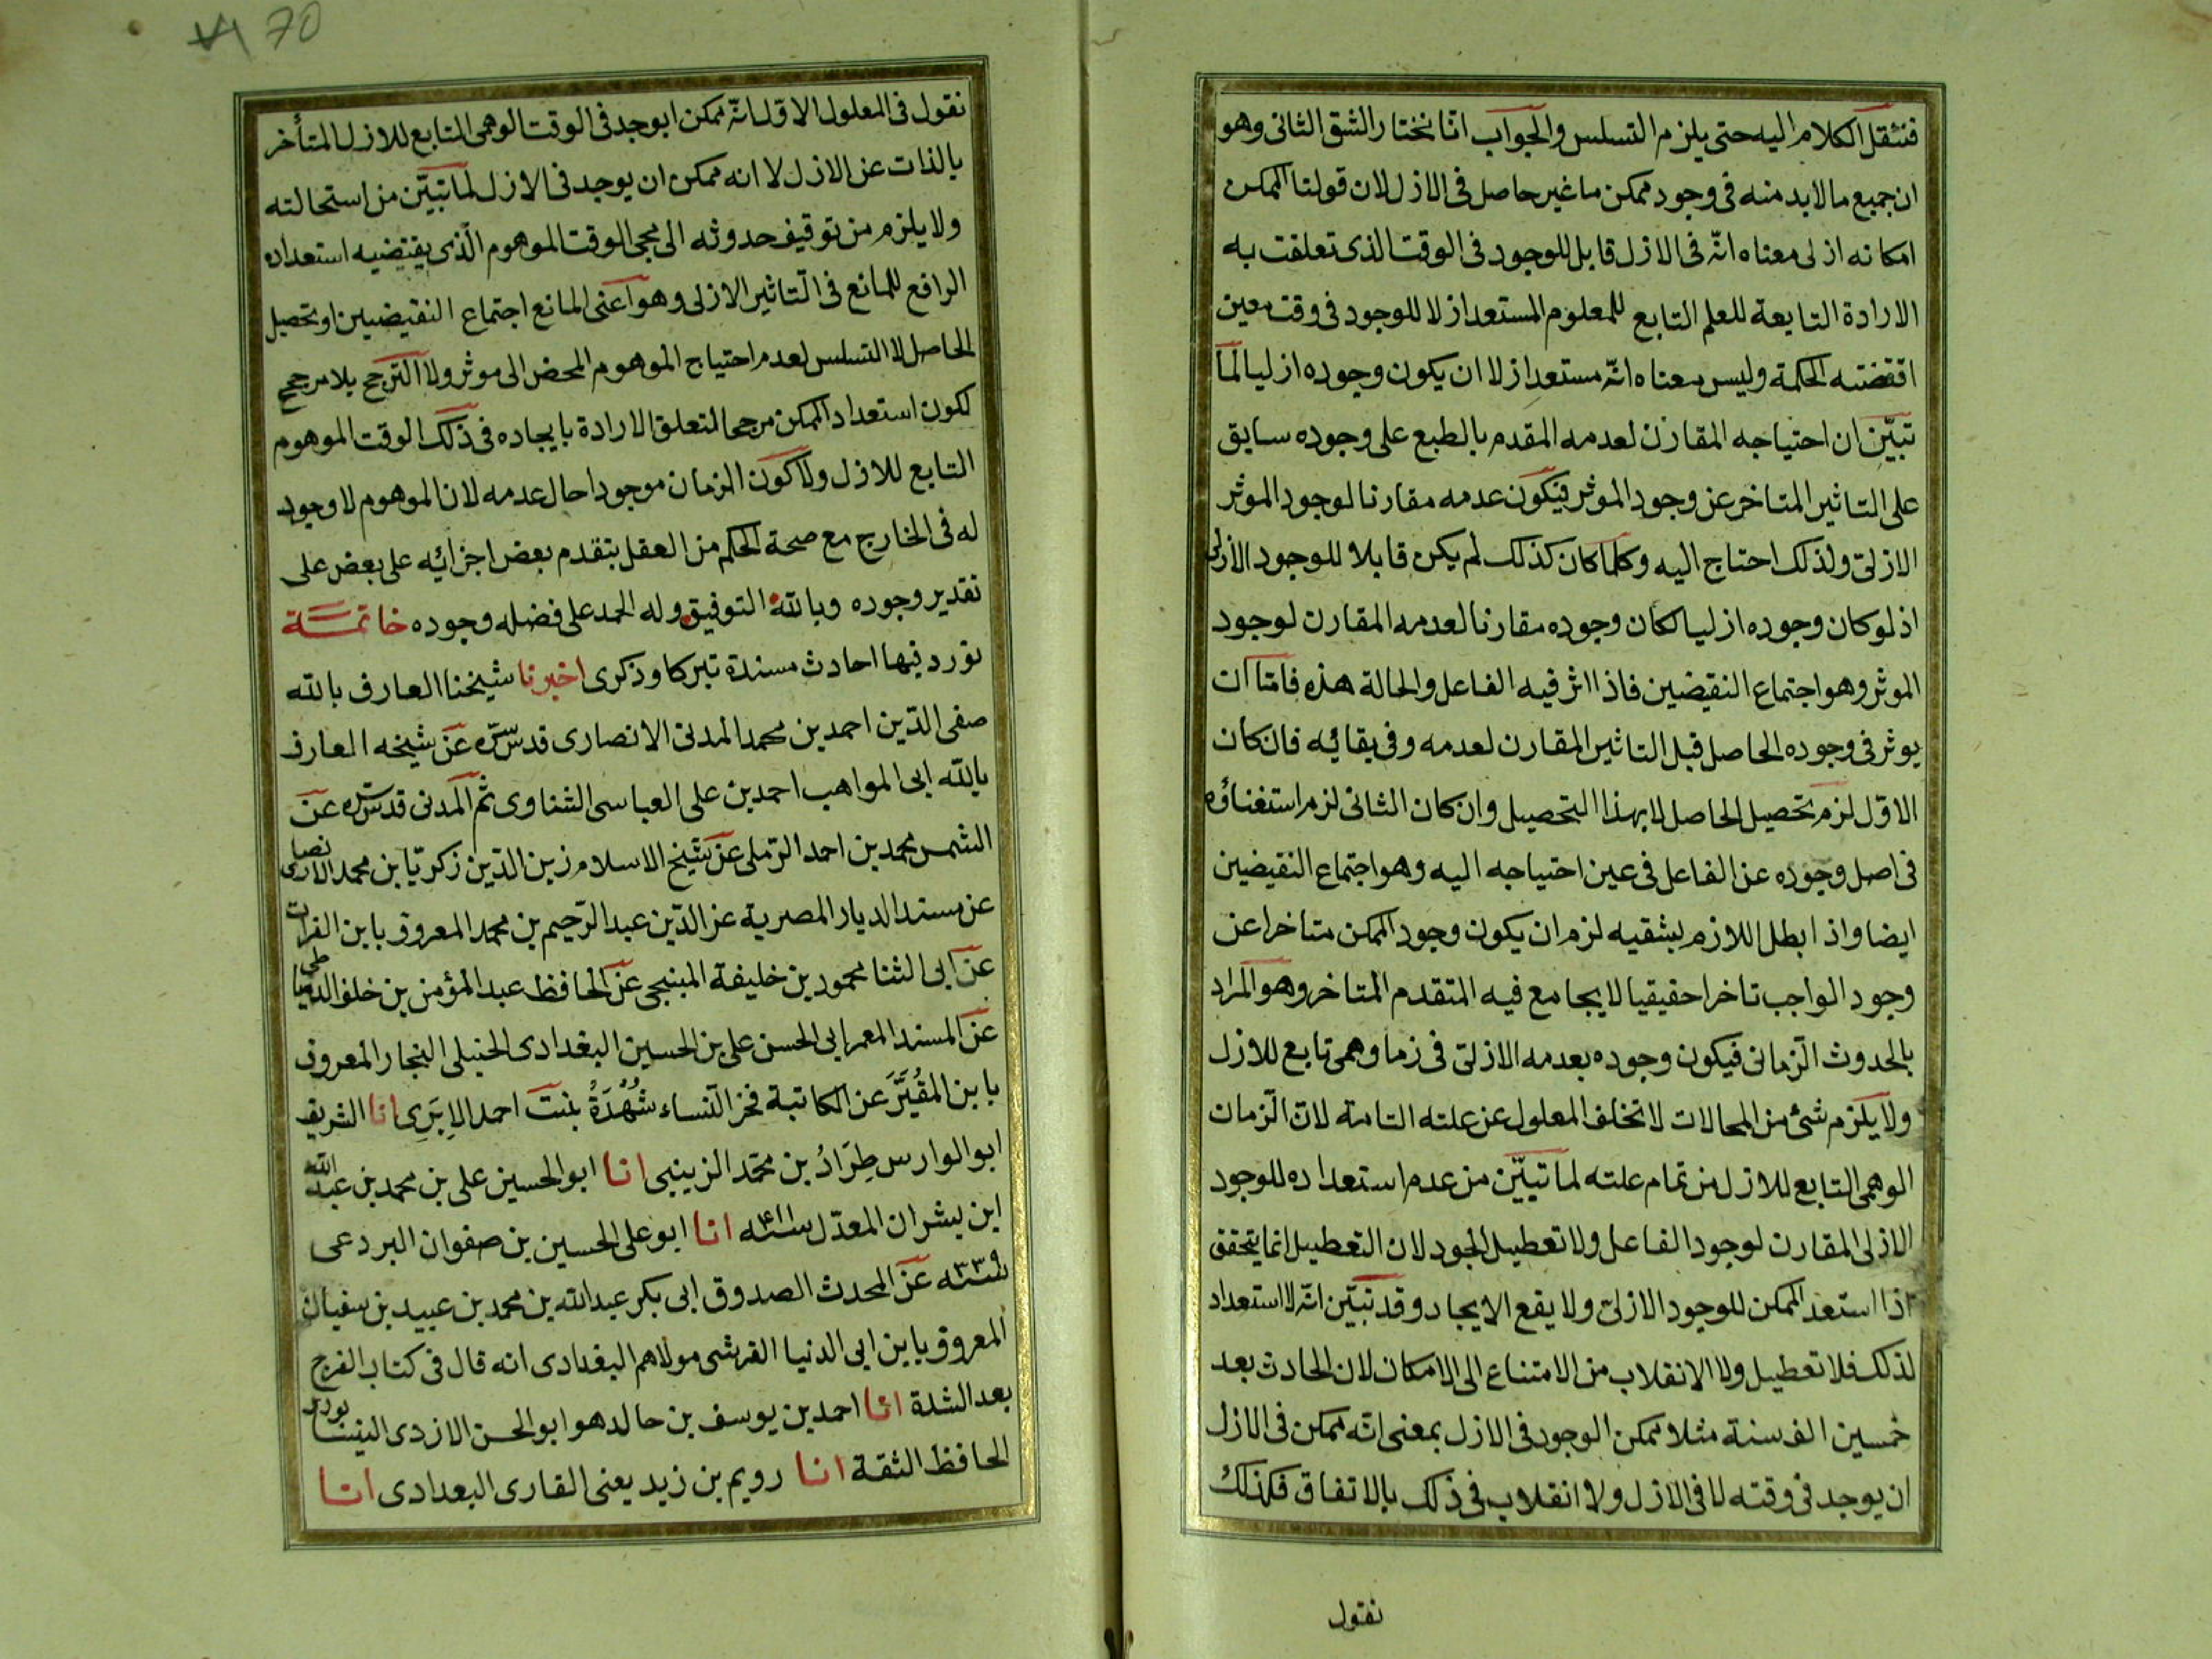 فننقل الكلام اليه حتى يلزم التسلسل والجواب انّا نختار الشق الثانى وهو
ان جميع ما لابد منه فى وجود ممكن ما غير حاصل فى الازل لان قولنا الممكن
امكانه ازلى معناه انّه فى الازل قابل للوجود فى الوقت الذى تعلقت به
الارادة التابعة للعلم التابع للمعلوم المستعد ازلا للوجود فى وقت معين
اقتضته الحكمة وليس معناه انّه مستعد ازلا ان يكون وجوده ازليا لما
تبيّن ان احتياجه المقارن لعدمه المقدم بالطبع على وجوده سابق
على التاثير المتاخر عن وجود الموثر فيكون عدمه مقارنا لوجود الموثر
الازلىّ ولذلك احتاج اليه وكلما كان كذلك لم يكن قابلا للوجود الازلى
اذ لو كان وجوده ازليا لكان وجوده مقارنا لعدمه المقارن لوجود
الموثر وهو اجتماع النقيضين فاذا اثر فيه الفاعل والحالة هذه فامّا ان
يوثر فى وجوده الحاصل قبل التاثير المقارن لعدمه وفى بقائه فان كان
الاوّل لزم تحصيل الحاصل لا بهذا التحصيل وان كان الثانى لزم استغناؤه
فى اصل وجوده عن الفاعل فى عين احتياجه اليه وهو اجتماع النقيضين
ايضا واذ ابطل اللازم بشقيه لزم ان يكون وجود الممكن متاخرا عن
وجود الواجب تاخرا حقيقيا لا يجامع فيه المتقدم المتاخر وهو المراد
بالحدوث الزمانى فيكون وجوده بعدمه الازلىّ فى زما وهمى تابع للازل
ولا يلزم شئ من المحالات لا تخلف المعلول عن علته التامة لان الزمان
الوهمى التابع للازل من تمام علته لما تبيّن من عدم استعداده للوجود
الازلى المقارن لوجود الفاعل ولا تعطيل الجود لان التعطيل انما يتحقق
اذا استعد الممكن للوجود الازلىّ ولا يقع الايجاد وقد تبيّن انّه لا استعداد
لذلك فلا تعطيل ولا الانقلاب من الامتناع الى الامكان لان الحادث بعد
خمسين الف سنة مثلا ممكن الوجود فى الازل بمعنى انّه ممكن فى الازل
ان يوجد فى وقته لا فى الازل ولا انقلاب فى ذلك بالاتفاق فكذلك
نقول
70
نقول فى المعلول الاوّل انّه ممكن ان يوجد فى الوقت الوهمى التابع للازل المتأخر
بالذات عن الازل لا انه ممكن ان يوجد فى الازل لما تبيّن من استحالته
ولا يلزم من توقيف حدوثه الى مجى الوقت الموهوم الّذى يقتضيه استعداده
الرافع للمانع فى التاثير الازلى وهو اعنى المانع اجتماع النقيضين او تحصيل
الحاصل لا التسلسل لعدم احتياج الموهوم المحض الى موثر ولا الترجح بلا مرجح
لكون استعداد الممكن مرجحا لتعلق الارادة بايجاده فى ذلك الوقت الموهوم
التابع للازل ولا كون الزمان موجودا حال عدمه لان الموهوم لا وجود
له فى الخارج مع صحة الحكم من العقل بتقدم بعض اجزائه على بعض على
تقدير وجوده وبالله التوفيق وله الحمد على فضله وجوده خاتمة
نورد فيها احادث مسندة تبركا وذكرى اخبرنا شيخنا العارف بالله
صفى الدّين احمد بن محمد المدنى الانصارى قدس سرّه عن شيخه العارف
بالله ابى المواهب احمد بن على العباسى الشناوى ثم المدنى قدس سره عن
الشمس محمد بن احمد الرّملى عن شيخ الاسلام زين الدّين زكريّا بن محمد الانصارى
عن مسند الديار المصرية عز الدّين عبد الرّحيم بن محمد المعروف بابن الفرات
عن ابى الثنا محمود بن خليفة المنبجى عن الحافظ عبد المؤمن بن خلف الدمياطى
عن المسند المعمر ابى الحسن على بن الحسين البغدادى الحنبلى النجار المعروف
بابن المُقَيَّر عن الكاتبة فخر النّساء شُهْدَةُ بنت احمد الابَرِى انا الشريف
ابو الوارس طِرَادُ بن محمّد الزينبى انا ابو الحسين على بن محمد بن عبد الله
ابن بشران المعدّل سنة ٤١١ انا ابو على الحسين بن صفوان البردعى
سنة ٣٣٩ عن المحدث الصدوق ابى بكر عبد الله بن محمد بن عبيد بن سفيان
المعروف بابن ابى الدنيا القرشى مولاهم البغدادى انه قال فى كتاب الفرج
بعد الشدة انا احمد بن يوسف بن خالد هو ابو الحسن الازدى النيسابورى
الحافظ الثقة انا رويم بن زيد يعنى القارى البعدادى انا